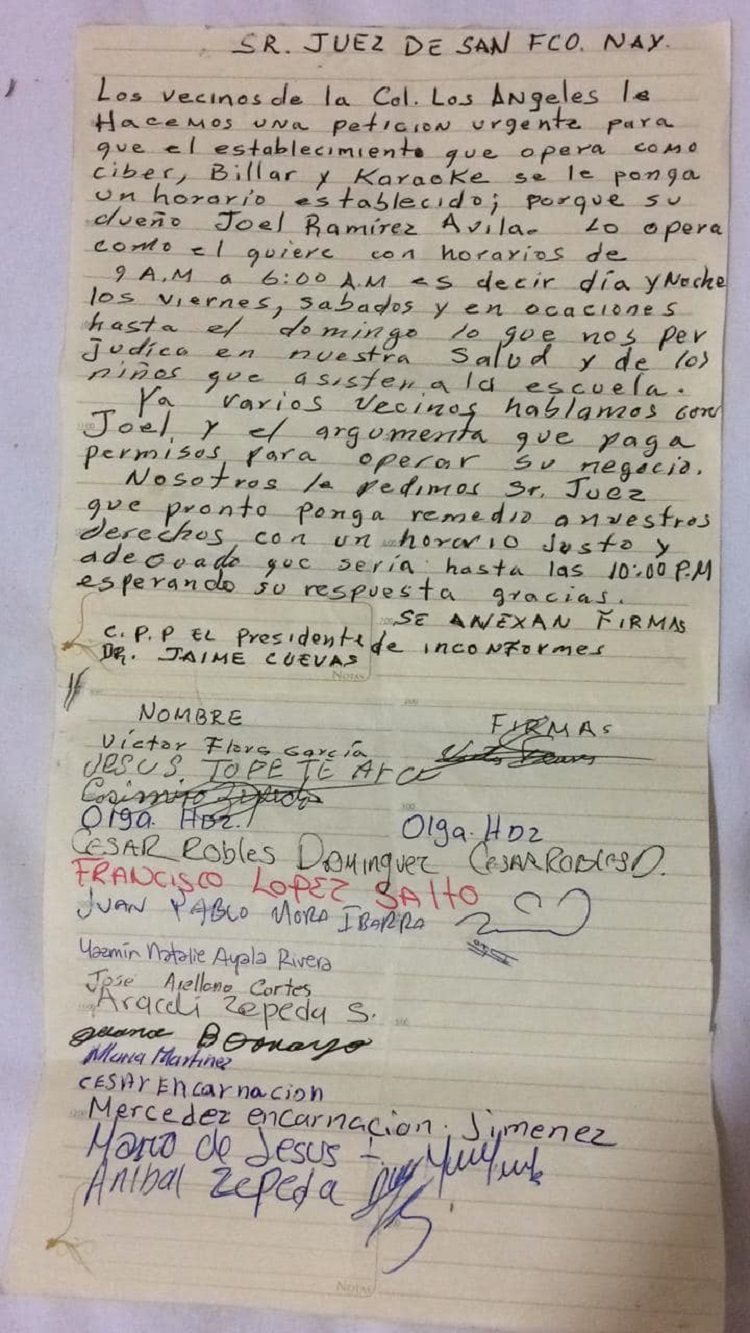 SR. JUEZ DE SAN FCO. NAY.
Los vecinos de la Col. Los Angeles le
Hacemos una peticion urgente para
que el establecimiento que opera como
ciber, Billar y Karaoke se le ponga
un horario establecido; porque su
dueño Joel Ramírez Avila. Lo opera
como el quiere con horarios de
9 A.M a 6:00 A.M es decir día y Noche
los viernes, sabados y en ocaciones
hasta el domingo lo que nos per
judica en nuestra salud y de los
niños que asisten a la escuela.
Ya varios vecinos hablamos con
Joel, y el argumenta que paga
permisos para operar su negocio.
Nosotros le pedimos Sr. Juez
que pronto ponga remedio a nuestros
derechos con un horario Justo y
adecuado que sería hasta las 10:00 P.M
esperando su respuesta gracias.
SE ANEXAN FIRMAS
de inconformes
C.P.P EL Presidente
DR. JAIME CUEVAS
NOTAS
NOMBRE FIRMAS
Víctor Flors García
JESUS TOPETE ARCE
Olga. HDZ. Olga. HDZ
CESAR Robles Dominguez CESAR ROBLES D.
FRANCISCO LOPEZ SALTO
JUAN PABLO MORA IBARRA
Yazmin Natalie Ayala Rivera
José Arellano Cortes
Araceli Zepeda S.
María Martinez
CESAR Encarnacion
Mercedez encarnacion. Jimenez
Mario de Jesus
Anibal Zepeda
NOTAS